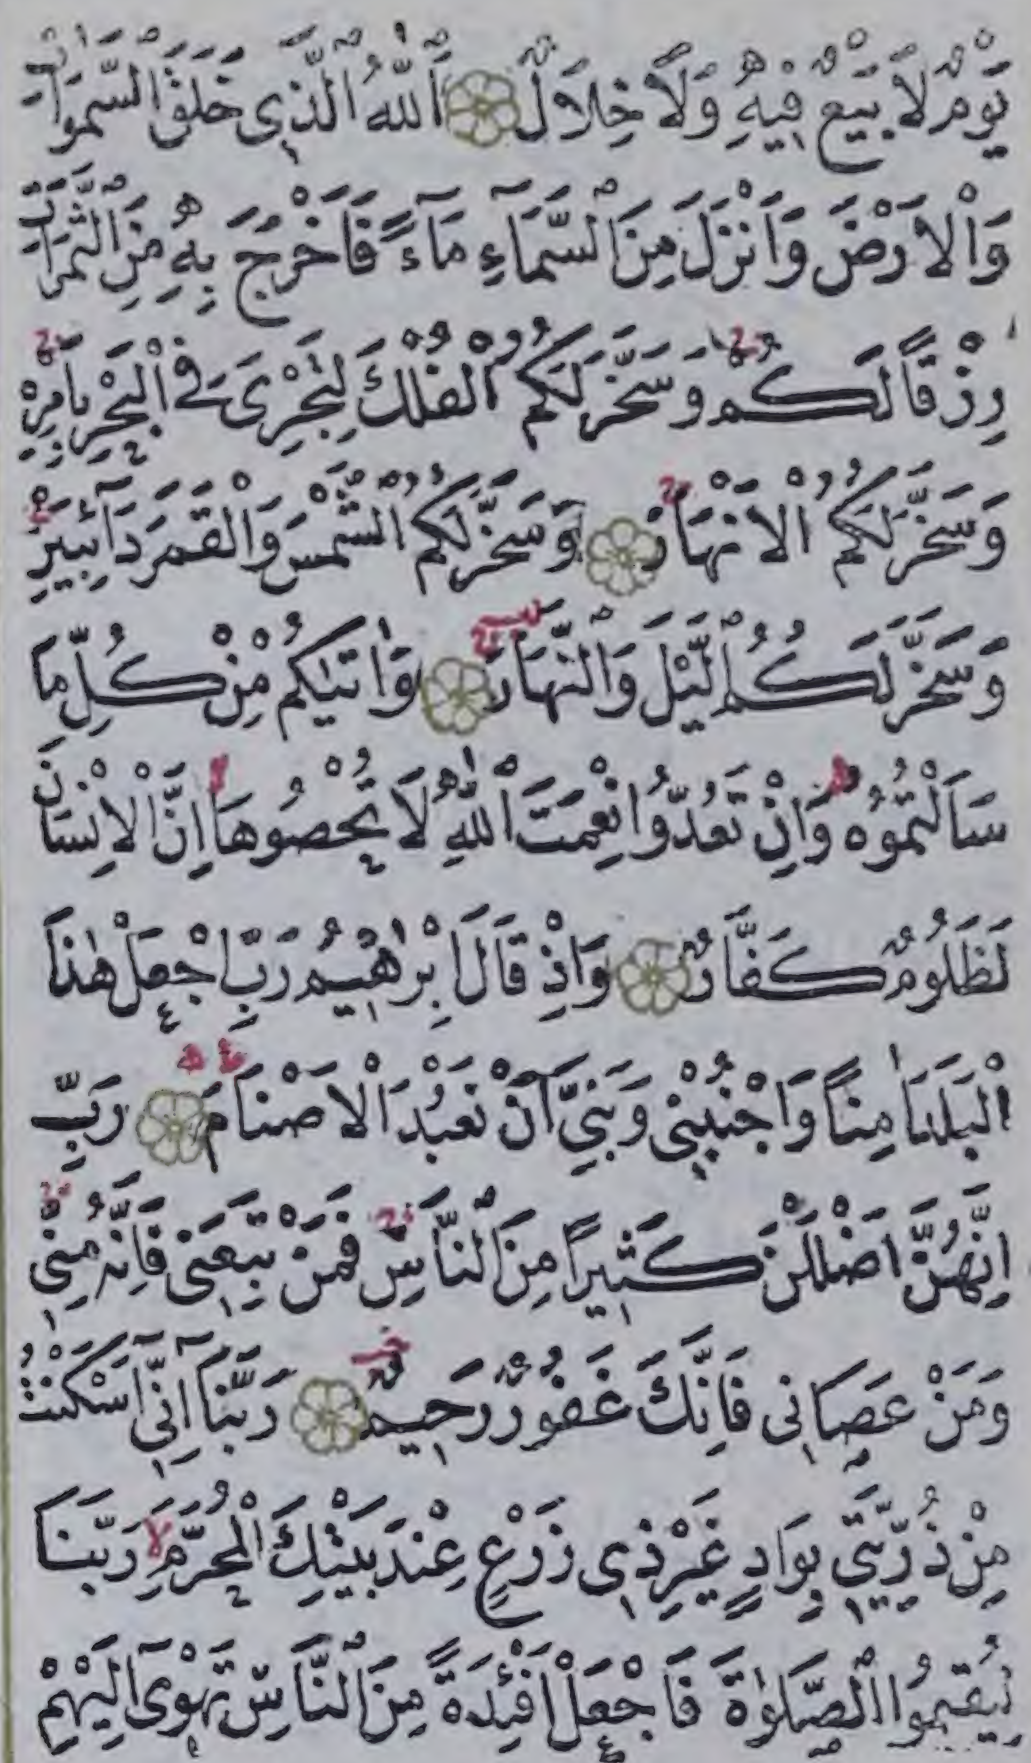 يَوْمٌ لَا بَيْعٌ فِيهِ وَلَا خِلَالٌ اَللّٰهُ الَّذِى خَلَقَ السَّمٰوَاتِ
وَالْاَرْضَ وَاَنْزَلَ مِنَ السَّمَاۤءِ مَاۤءً فَاَخْرَجَ بِهِ مِنَ الثَّمَرَاتِ
رِزْقًا لَكُمْ وَسَخَّرَ لَكُمُ الْفُلْكَ لِتَجْرِىَ فِى الْبَحْرِ بِاَمْرِهِ
وَسَخَّرَ لَكُمُ الْاَنْهَارَ وَسَخَّرَ لَكُمُ الشَّمْسَ وَالْقَمَرَ دَاۤئِبَيْنِ
وَسَخَّرَ لَكُمُ الَّيْلَ وَالنَّهَارَ وَاٰتٰيكُمْ مِنْ كُلِّ مَا
سَاَلْتُمُوهُ وَاِنْ تَعُدُّوا نِعْمَتَ اللّٰهِ لَا تُحْصُوهَا اِنَّ الْاِنْسَانَ
لَظَلُومٌ كَفَّارٌ وَاِذْ قَالَ اِبْرٰهِيمُ رَبِّ اجْعَلْ هٰذَا
الْبَلَدَ اٰمِنًا وَاجْنُبْنِى وَبَنِىَّ اَنْ نَعْبُدَ الْاَصْنَامَ رَبِّ
اِنَّهُنَّ اَضْلَلْنَ كَثِيرًا مِنَ النَّاسِ فَمَنْ تَبِعَنِى فَاِنَّهُ مِنِّى
وَمَنْ عَصَانِى فَاِنَّكَ غَفُورٌ رَحِيمٌ رَبَّنَاۤ اِنِّىۤ اَسْكَنْتُ
مِنْ ذُرِّيَّتِى بِوَادٍ غَيْرِ ذِى زَرْعٍ عِنْدَ بَيْتِكَ الْمُحَرَّمِ رَبَّنَا
لِيُقِيمُوا الصَّلٰوةَ فَاجْعَلْ اَفْئِدَةً مِنَ النَّاسِ تَهْوِىۤ اِلَيْهِمْ